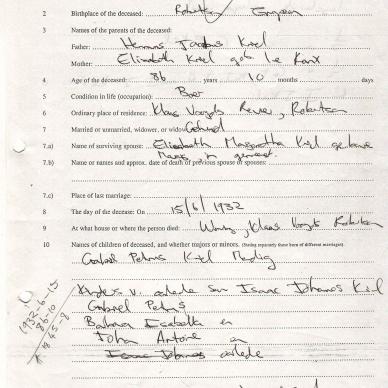 2 Birthplace of the deceased: Robertson
3 Names of the parents of the deceased:
Father: Hermanus Jacobus Kriel
Mother: Elizabeth Kriel geb le
4 Age of the deceased: 86 years 10 months days
5 Condition in life (occupation): Boer
6 Ordinary place of residence: Klaas Voogds River, Robertson
7 Married or unmarried, widower, or widow: Gehuwd
7.a) Name of surviving spouse: Elizabeth Margaretha Kriel gebore
7.b) Name or names and approx. date of death of previous spouse or spouses:
7.c) Place of last marriage:
8 The day of the decease: On 15/6/1932
9 At what house or where the person died: Woning, Klaas Voogds Robertson
10 Names of children of deceased, and whether majors or minors. (Stating separately those born of different marriages).
Gabriel Petrus Kriel Mondig
v. oorlede sun Isaac Johannes Kriel
Gabriel Petrus
Isabella en
John Antonie en
Isaac Johannes oorlede
1932-6-15
86-10
1845-8